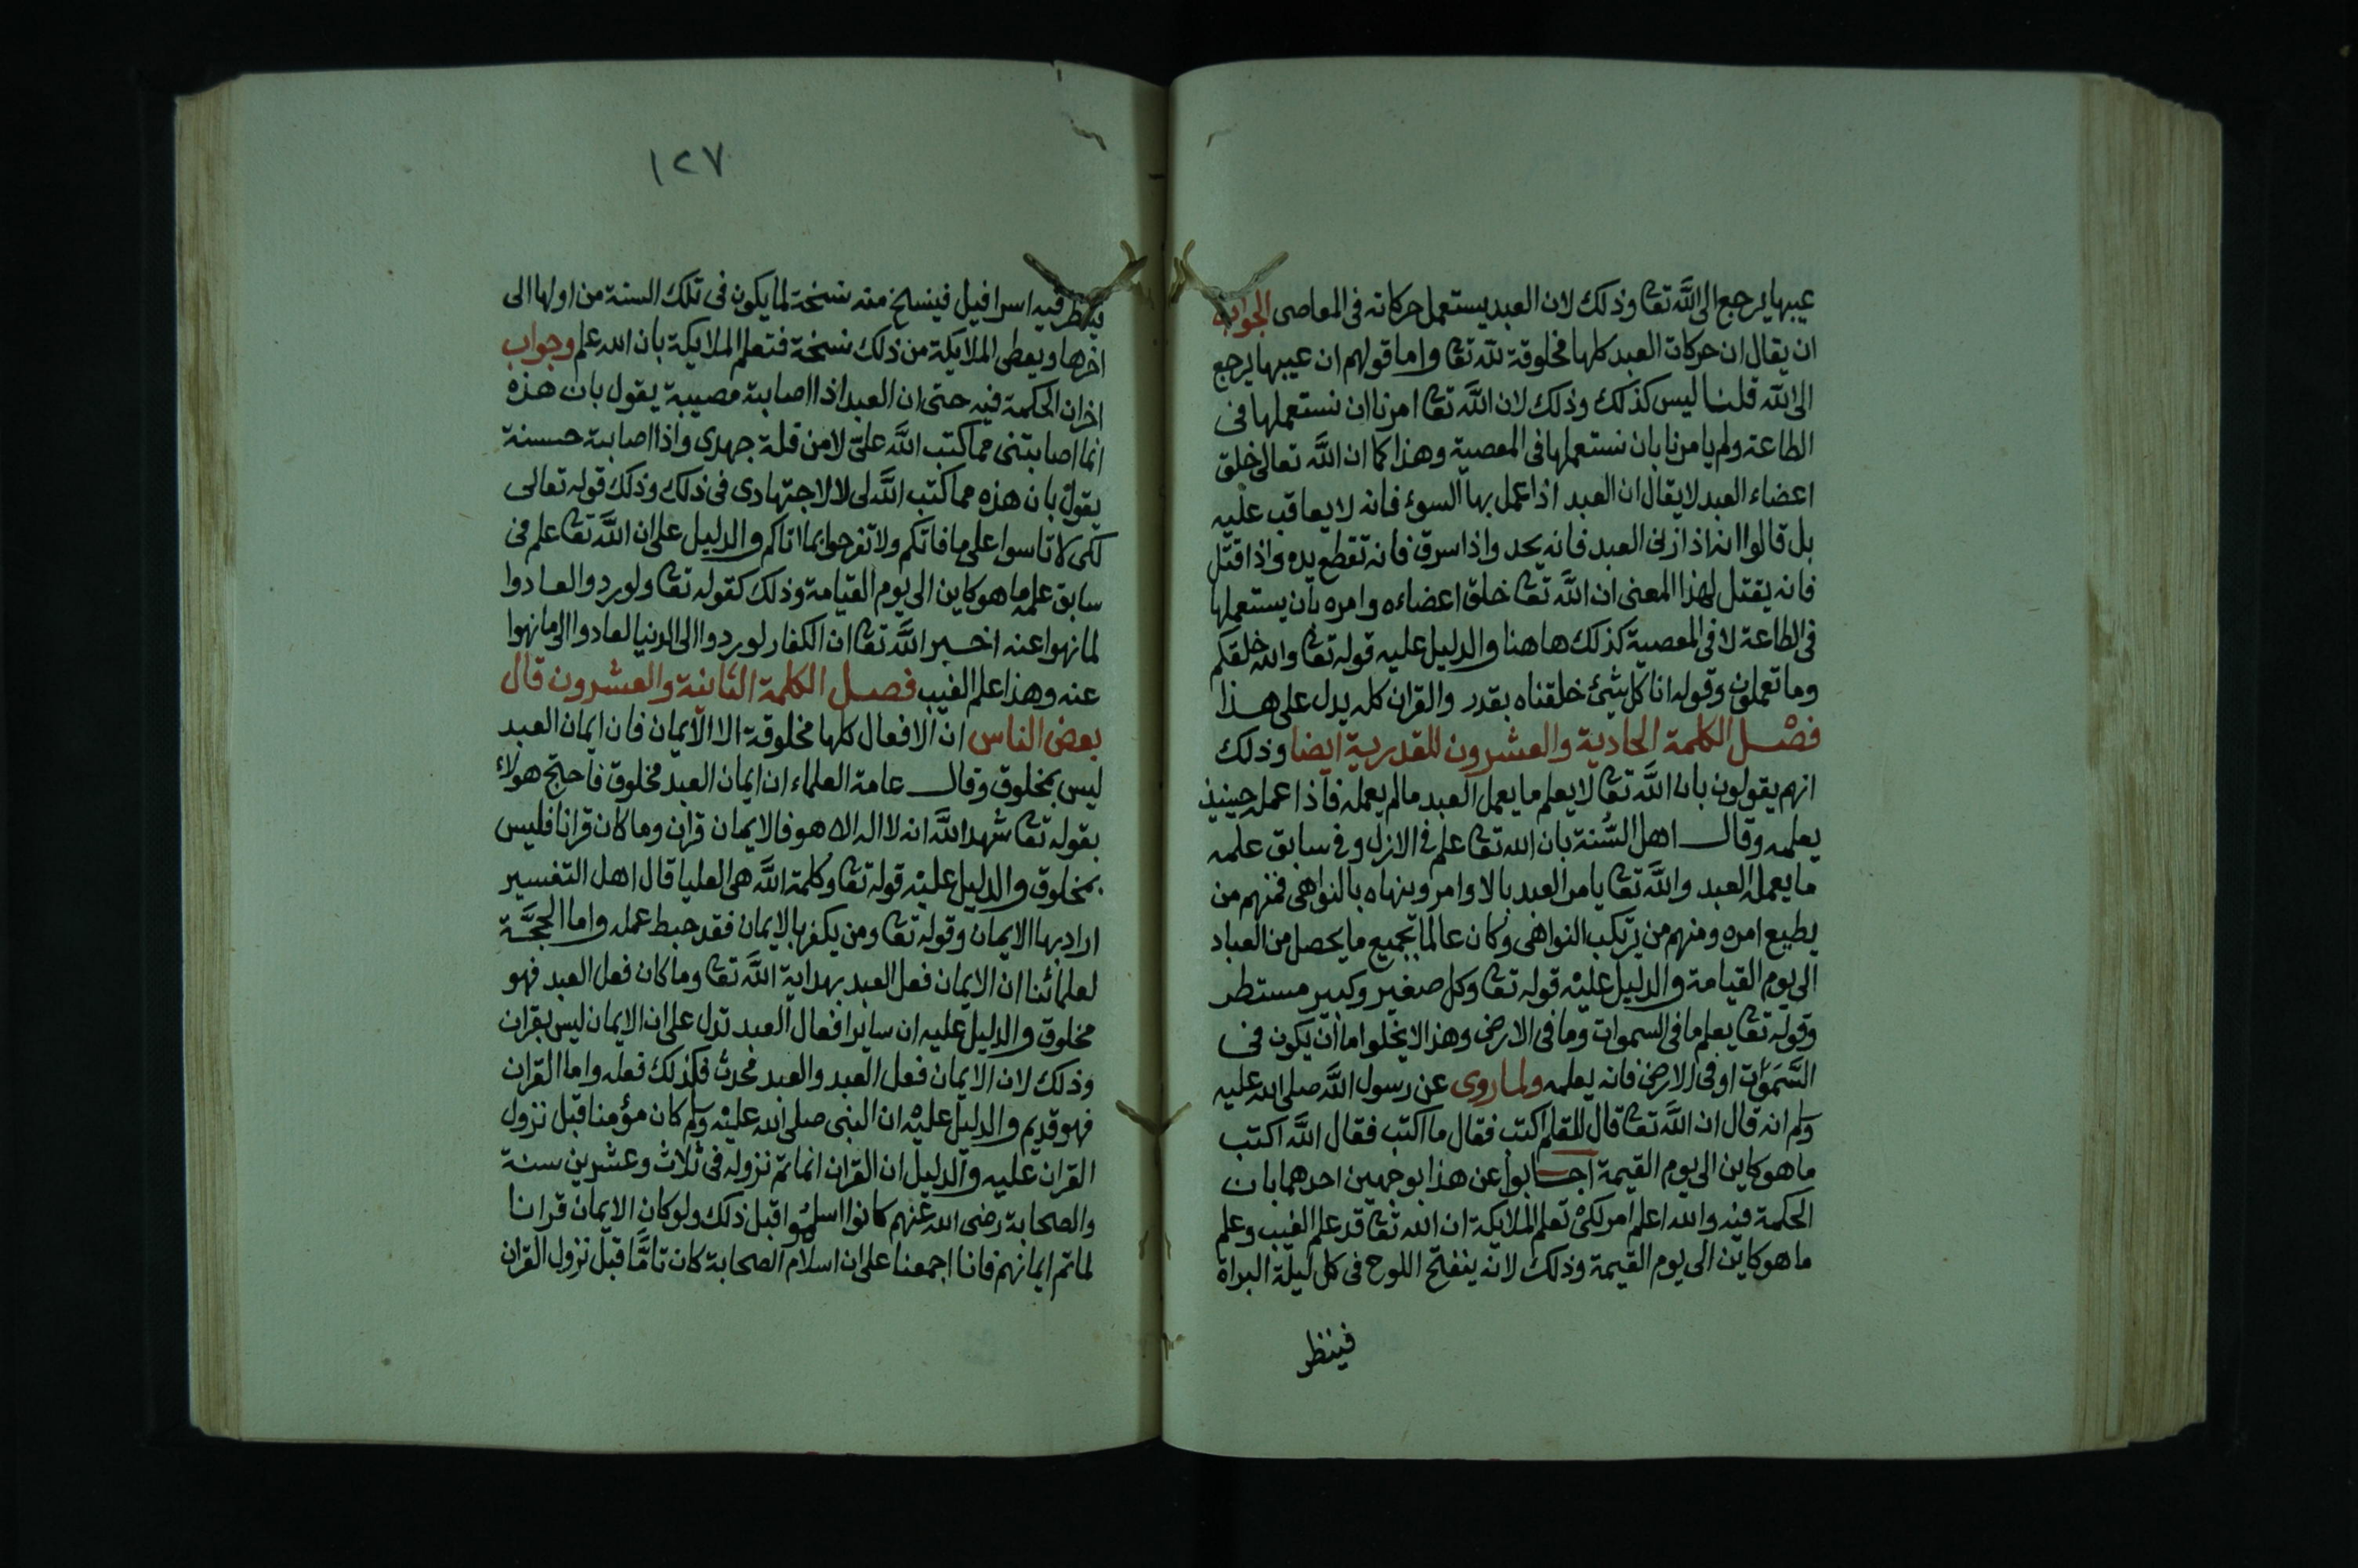 عيبها يرجع الى الله تعا وذلك لان العبد يستعمل حركاته فى المعاصى الجواب
ان يقال ان حركات العبد كلها مخلوقة لله تعا واما قولهم ان عيبها يرجع
الى الله قلنا ليس كذلك وذلك لان الله تعا امرنا ان نستعملها فى
الطاعة ولم يامرنا بان نستعملها فى المعصية وهذا كما ان الله تعالى خلق
اعضاء العبد لا يقال ان العبد اذا عمل بها السوء فانه لا يعاقب عليه
بل قالوا انه اذا زنى العبد فانه يحد واذا سرق فانه تقطع يده واذا قتل
فانه يقتل لهذا المعنى ان الله تعا خلق اعضاءه وامره بان يستعملها
فى الطاعة لا فى المعصية كذلك هاهنا والدليل عليه قوله تعا والله خلقكم
وما تعملون وقوله انا كل شئ خلقناه بقدر والقران كله يدل على هذا
فصل الكلمة الحادية والعشرون للقدرية ايضا وذلك
انهم يقولون بان الله تعا لا يعلم ما يعمل العبد مالم يعمله فاذا عمل حينيذ
يعلمه وقال اهل السُّنة بان الله تعا علم فى الازل وفى سابق علمه
ما يعمل العبد والله تعا يامر العبد بالاوامر وينهاه بالنواهى فمنهم من
يطيع امره ومنهم من يرتكب النواهى وكان عالما بجميع ما يحصل من العباد
الى يوم القيامة والدليل عليه قوله تعا وكل صغير وكبير مستطر
وقوله تعا يعلم ما فى السموات وما فى الارض وهذا لا يخلوا اما ان يكون فى
السَّمَوَات او فى الارض فانه يعلمه ولما روى عن رسول الله صلى الله عليه
وسلم انه قال ان الله تعا قال للقلم اكتب فقال ما اكتب فقال الله اكتب
ما هو كاين الى يوم القيمة اجابوا عن هذا بوجهين احدهما بان
الحكمة فيه والله اعلم امر لكى تعلم الملايكة ان الله تعا قد علم الغيب وعلم
ما هو كاين الى يوم القيمة وذلك لانه ينفتح اللوح فى كل ليلة البراة
فينظر
١٢٧
ينظر فيه اسرافيل فينسخ منه نسخة لما يكون فى تلك السنة من اولها الى
اخرها ويعطى الملايكة من ذلك نسخة فتعلم الملايكة بان الله علم وجواب
اخر ان الحكمة فيه حتى ان العبد اذا اصابته مصيبة يقول بان هذه
انما اصابتنى مما كتب الله علىّ لا من قلة جهدى واذا اصابته حسنة
يقول بان هذه مما كتب الله لى لا لاجتهادى فى ذلك وذلك قوله تعالى
لكى لا تاسوا على ما فاتكم ولا تفرحوا بما اتاكم والدليل على ان الله تعا علم فى
سابق علمه ما هو كاين الى يوم القيامة وذلك كقوله تعا ولو ردوا لعادوا
لما نهوا عنه اخبر الله تعا ان الكفار لو ردوا الى الدنيا لعادوا الى ما نهوا
عنه وهذا علم الغيب فصل الكلمة الثانية والعشرون قال
بعض الناس ان الافعال كلها مخلوقة الا الايمان فان ايمان العبد
ليس بمخلوق وقال عامة العلماء ان ايمان العبد مخلوق فاحتج هولاء
بقوله تعا شهد الله انه لا اله الا هو فالايمان قران وما كان قرانا فليس
بمخلوق والدليل عليه قوله تعا وكلمة الله هى العليا قال اهل التفسير
اراد بها الايمان وقوله تعا ومن يكفر بالايمان فقد حبط عمله واما الحجَّة
لعلمائنا ان الايمان فعل العبد بهداية الله تعا وما كان فعل العبد فهو
مخلوق والدليل عليه ان ساير افعال العبد تدل على ان الايمان ليس بقران
وذلك لان الايمان فعل العبد والعبد محدث فكذلك فعله واما القران
فهو قديم والدليل عليه ان النبى صلى الله عليه وسلم كان مؤمنا قبل نزول
القران عليه والدليل ان القران انما تم نزوله فى ثلاث وعشرين سنة
والصحابة رضى الله عنهم كانوا اسلموا قبل ذلك ولو كان الايمان قرانا
لما تم ايمانهم فانا اجمعنا على ان اسلام الصحابة كان تامًّا قبل نزول القران